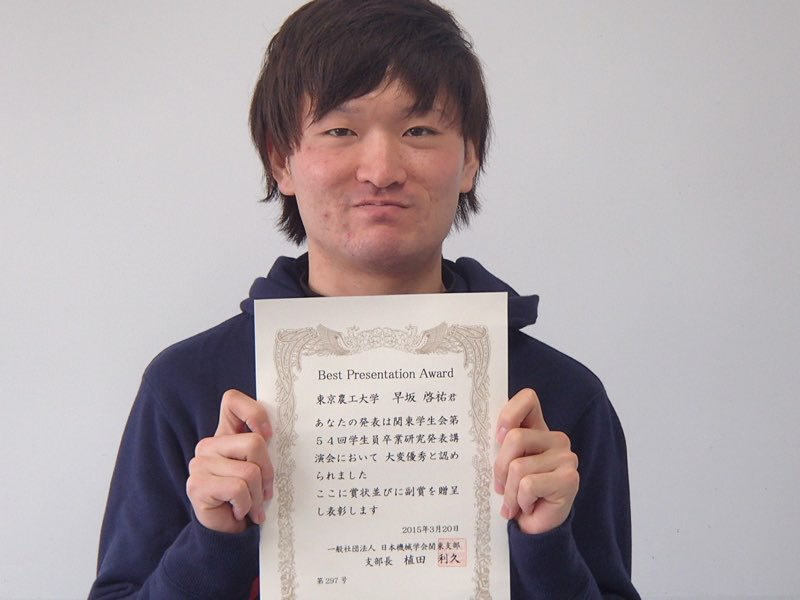 Best Presentation Award
東京農工大学 早坂 啓祐君
あなたの発表は関東学生会第
54回学生員卒業研究発表講
演会において 大変優秀と認め
られました
ここに賞状並びに副賞を贈呈
し表彰します
2015年3月20日
一般社団法人 日本機械学会関東支部
支部長 植田 利久
第297号